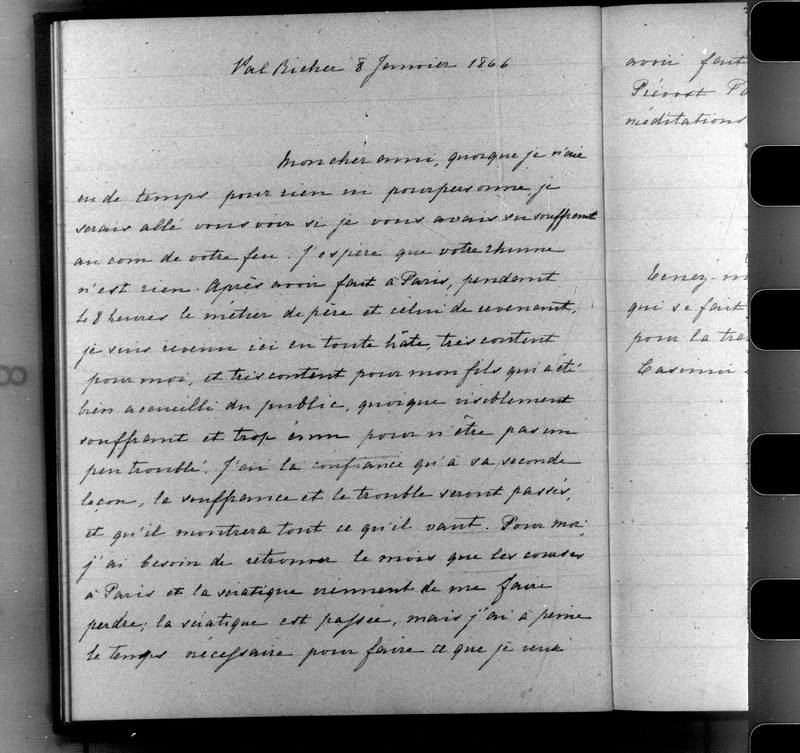 Val Richer 8 Janvier 1866
Mon cher ami, quoique je n'aie
eu de temps pour rien ni pour personne, je
serais allé vous voir si je vous avais su souffrant
au coin de votre feu. J'espère que votre rhume
n'est rien. Après avoir fait à Paris, pendant
48 heures le métier de père et celui de revenant,
je suis revenu ici en toute hâte, très content
pour moi, et très content pour mon fils qui a été
bien accueilli du public, quoique visiblement
souffrant et trop ému pour n'être pas un
peu troublé. J'ai la confiance qu'à sa seconde
leçon, la souffrance et le trouble seront passés,
et qu'il montrera tout ce qu'il vaut. Pour moi,
j'ai besoin de retrouver le mois que les courses
à Paris et la sciatique viennent de me faire
perdre; la sciatique est passée, mais j'ai à peine
le temps nécessaire pour faire ce que je veux
avoir fait
Prévost Pa
méditations
Tenez-m
qui se fait
pour la tra
Casimir